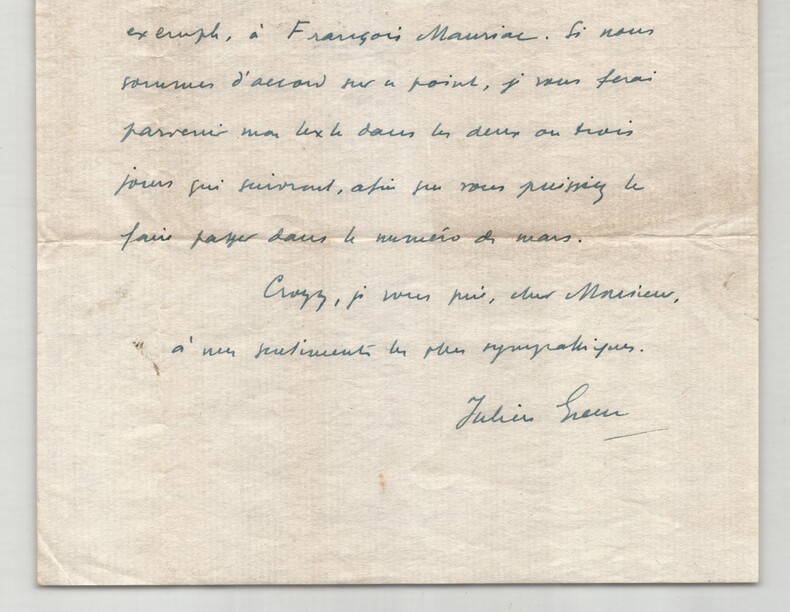 exemple, à François Mauriac. Si nous
sommes d'accord sur ce point, je vous ferai
parvenir mon texte dans les deux ou trois
jours qui suivront, afin que vous puissiez le
faire passer dans le numéro de mars.
Croyez, je vous prie, cher Monsieur,
à mes sentiments les plus sympathiques.
Julien Green